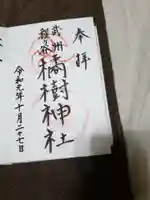 奉拝
武州
程ケ谷
橘樹神社
令和元年十月二十七日